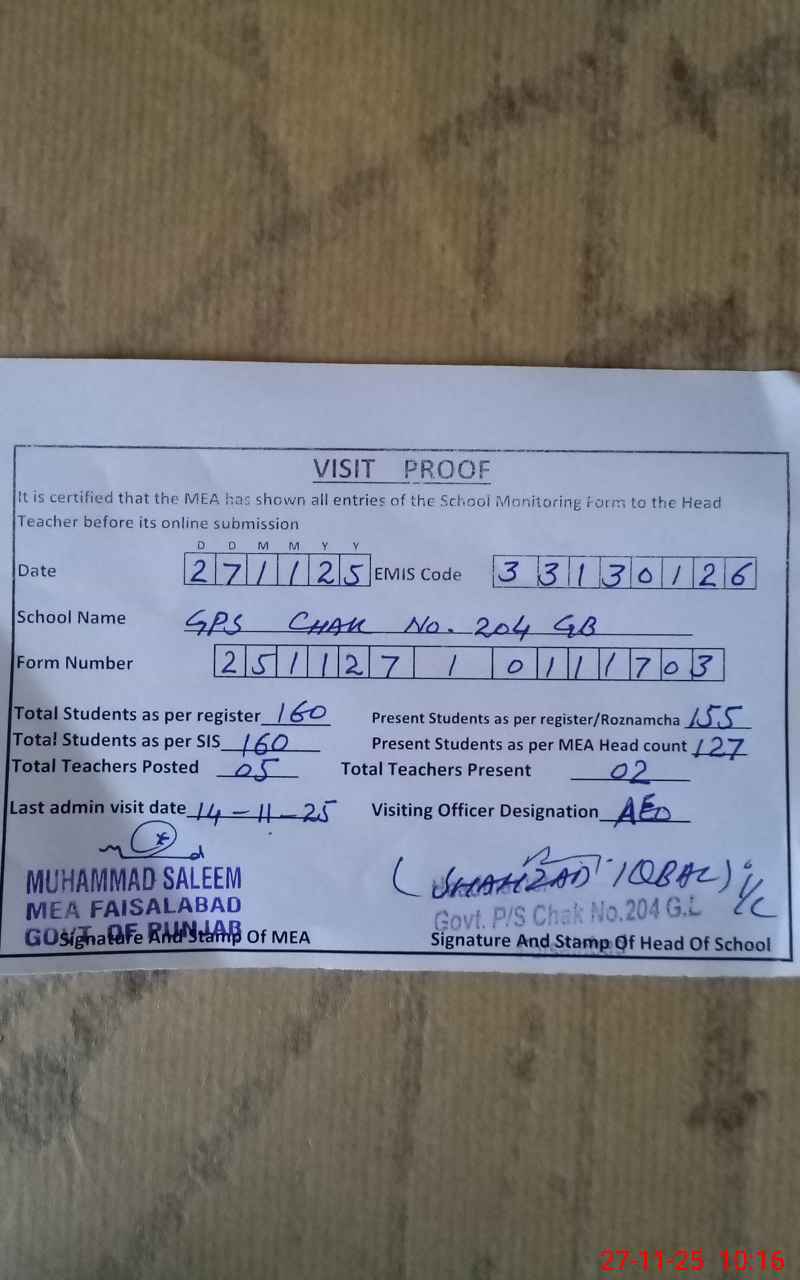 VISIT PROOF
It is certified that the MEA has shown all entries of the School Monitoring Form to the Head
Teacher before its online submission
D D M M Y Y
Date 271125 EMIS Code 33130126
School Name GPS CHAK No. 204 GB
Form Number 251127 1 0111703
Total Students as per register 160 Present Students as per register/Roznamcha 155
Total Students as per SIS 160 Present Students as per MEA Head count 127
Total Teachers Posted 05 Total Teachers Present 02
Last admin visit date 14-11-25 Visiting Officer Designation AEO
MUHAMMAD SALEEM (SHAHZAD IQBAL) i/c
MEA FAISALABAD Govt. P/S Chak No.204 G.
GOVT. OF PUNJAB
Signature And Stamp Of MEA Signature And Stamp Of Head Of School
27-11-25 10:16